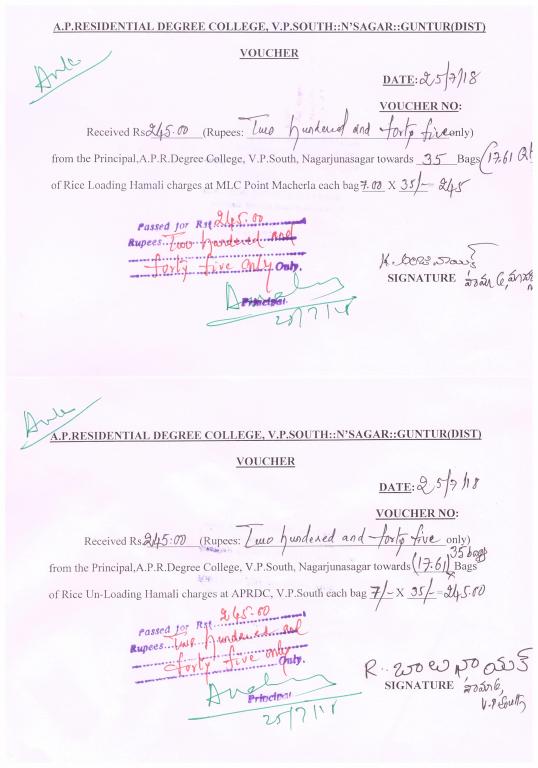 A.P.RESIDENTIAL DEGREE COLLEGE, V.P.SOUTH::N'SAGAR::GUNTUR(DIST)
VOUCHER
DATE:25/7/18
VOUCHER NO:
Received Rs245.00 (Rupees: Two hundered and forty five only)
from the Principal,A.P.R.Degree College, V.P.South, Nagarjunasagar towards 35 Bags(17.61
of Rice Loading Hamali charges at MLC Point Macherla each bag 7.00 X 35/-= 245
Passed for Rs: 245.00
Rupees Two hundered and
forty five only Only.
SIGNATURE
Principal
25/7/18
A.P.RESIDENTIAL DEGREE COLLEGE, V.P.SOUTH::N'SAGAR::GUNTUR(DIST)
VOUCHER
DATE:25/7/18
VOUCHER NO:
Received Rs.245:00 (Rupees: Two hundered and forty five only)
35 bags
from the Principal,A.P.R.Degree College, V.P.South, Nagarjunasagar towards (17.61) Bags
of Rice Un-Loading Hamali charges at APRDC, V.P.South each bag 7/- X 35/-=245.00
Passed for Rs: 245.00
Rupees Two hundered and
forty five only Only.
R. బాలు నాయక్
SIGNATURE
V.P South
Principal
25/7/18